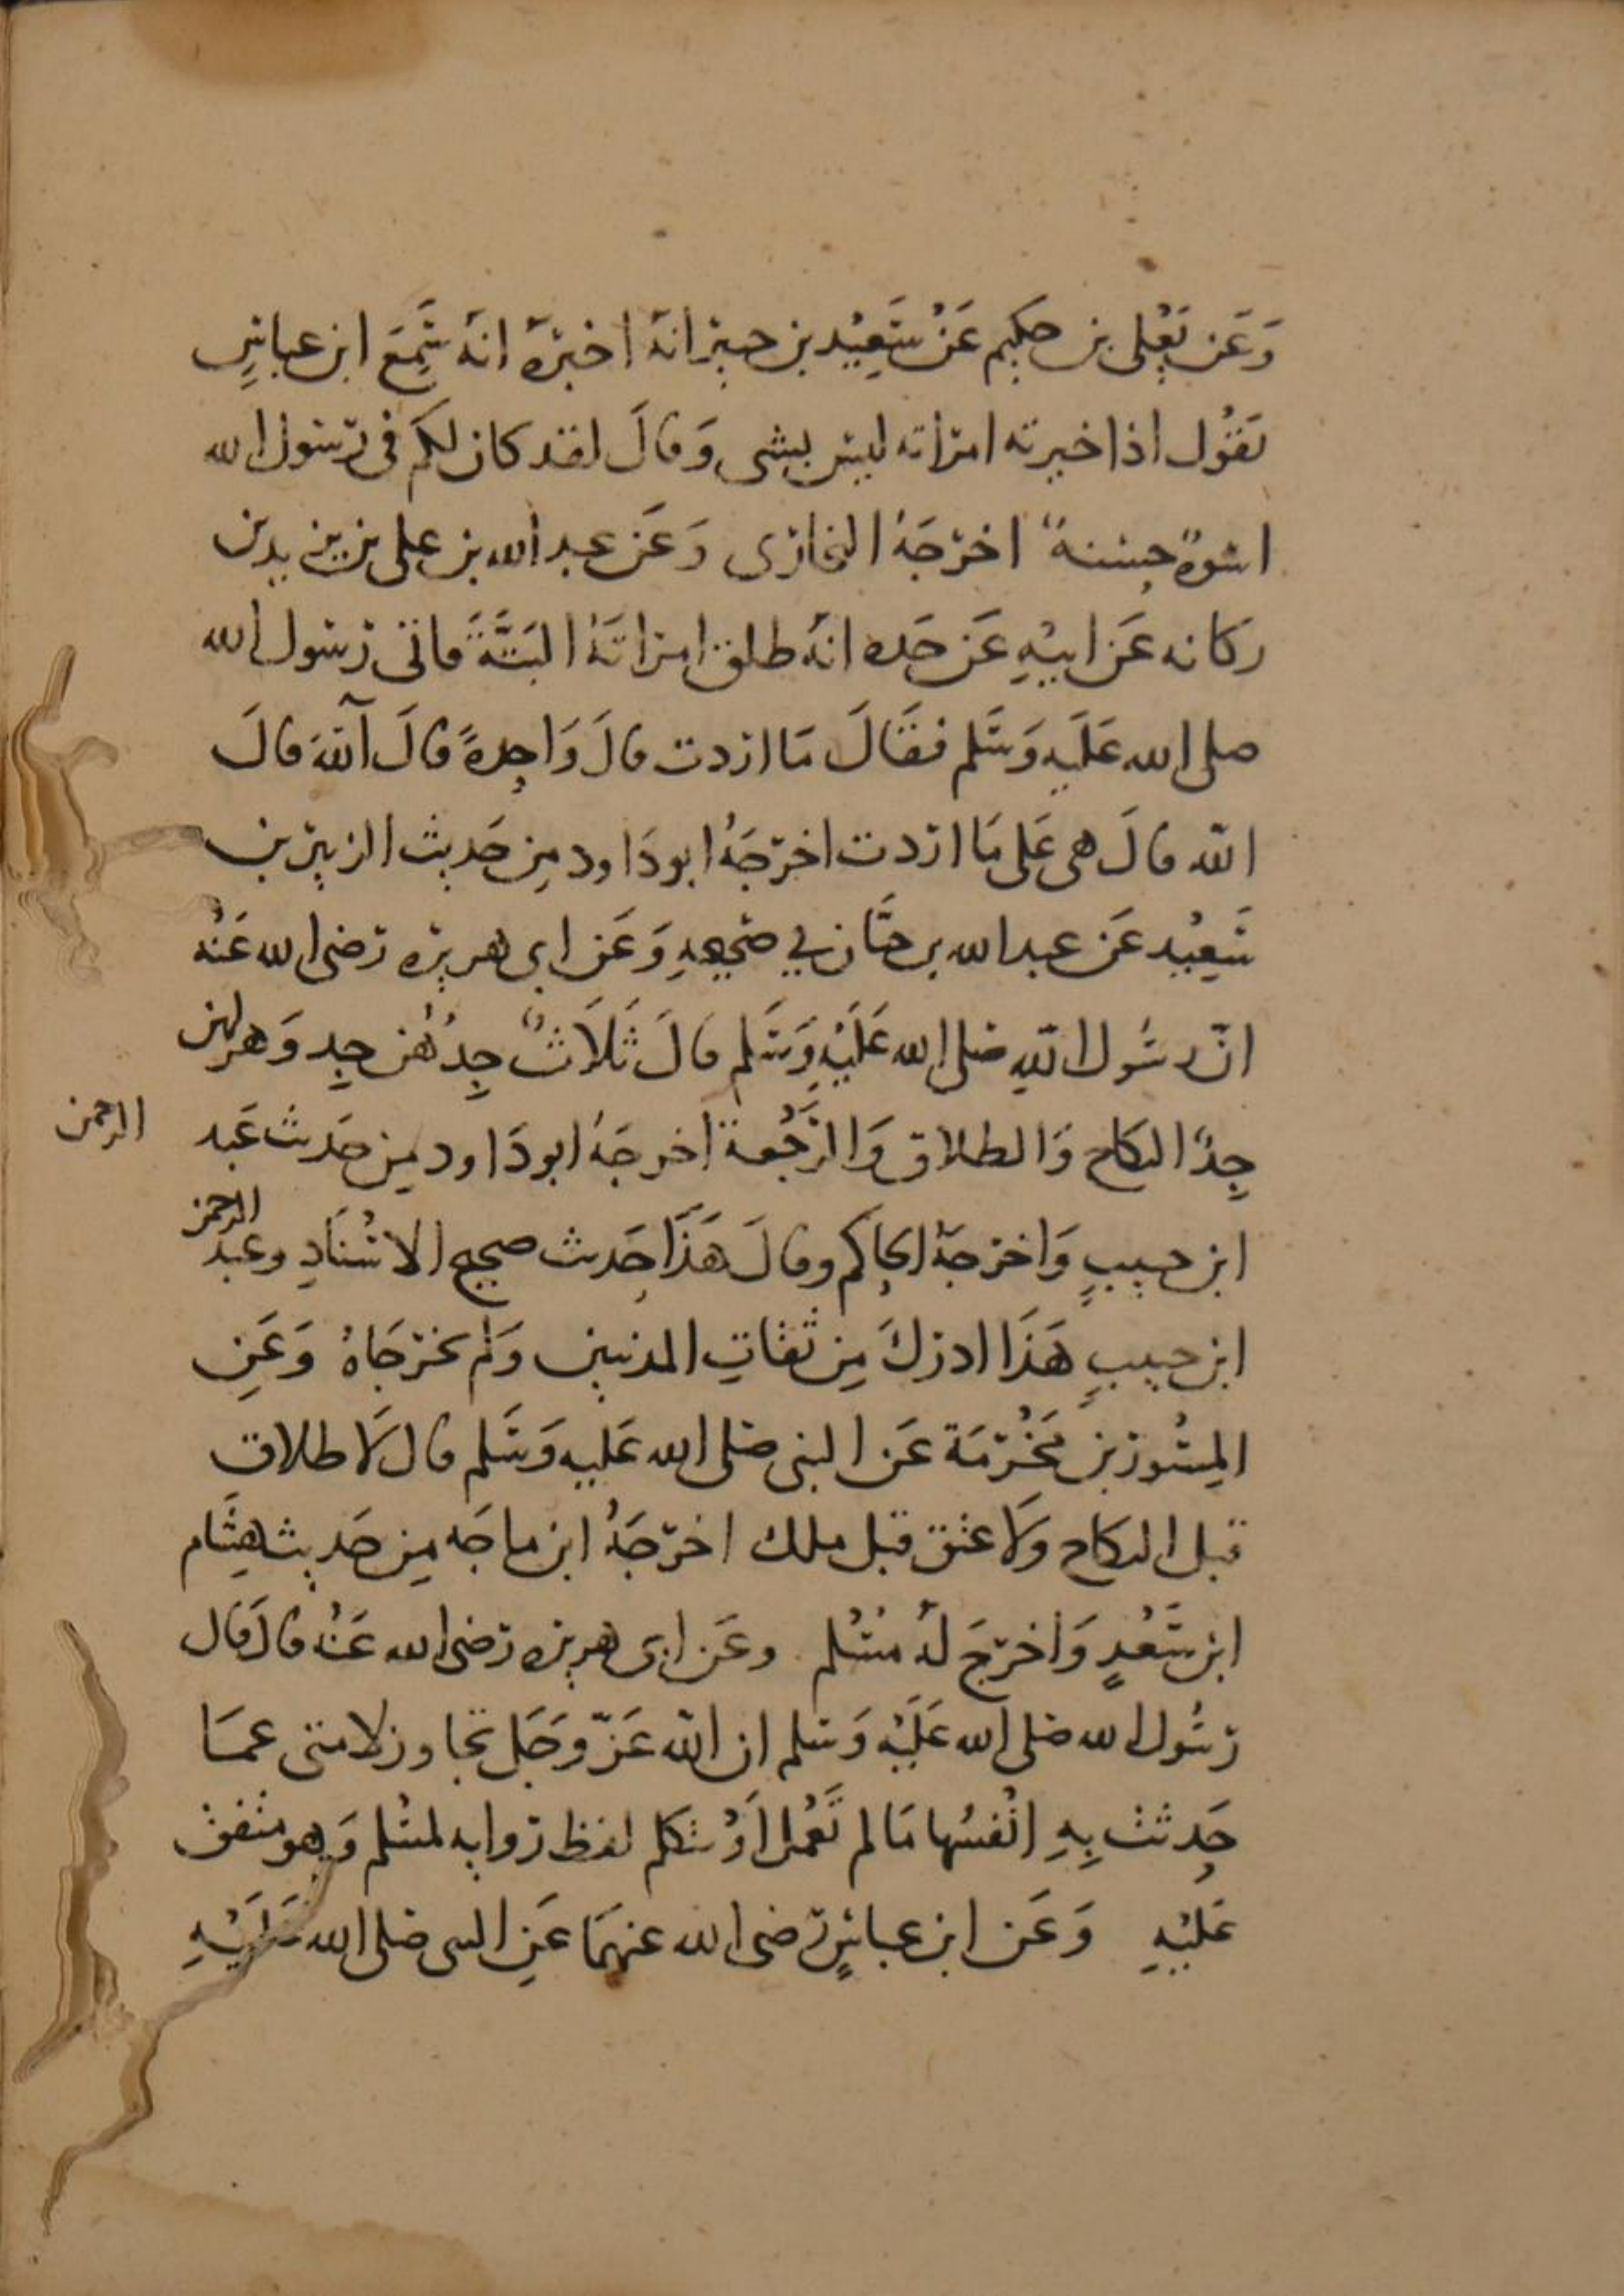 وَعَن يَعْلى بن حكيم عَنْ سَعِيْد بن جبير انهُ اخبَرهُ انهُ سَمِعَ ابن عباسٍ
يَقُول اذا خيرته امراته ليس بشى وَقالَ لقد كان لكم فى رسول الله
اسوةٌ حسنةٌ اخرَجَهُ البخارى وَعَن عبد الله بن على بن يزيد بن
ركانه عَن ابيْهِ عَن جَده انهُ طلق امراتَهُ البَتَّةَ فاتى رسول الله
صلى الله عَلَيه وَسَلم فقَالَ مَا اردت قالَ وَاحِدةً قالَ آللهَ قالَ
الله قالَ هى عَلى مَا اردت اخرَجَهُ ابو دَاود مِن حَديث الزبير بن
سَعِيْد عَن عبد الله بن حبَّان في صَحيحِهِ وَعَن ابى هريره رَضى الله عَنْه
انّ رسُول اللهِ صَلى الله عَلَيْهِ وَسَلم قالَ ثَلَاثٌ جِدُهُن جِد وَهزلهن
جِدٌ النكاح وَالطلاق وَالرَّجْعة اخرجَهُ ابو دَاود مِن حَديث عَبد الرحمن
ابن حبيبٍ وَاخرَجَهُ الحاكم وقالَ هَذَا حَديث صحيح الاسْنَادِ وعبد الرحمن
ابن حبيبٍ هَذَا ادركَ مِن ثقاتِ المدنيين وَلم يخرجَاهُ وَعَنِ
المِسْوَر بن مَخْرَمَة عَن النبى صَلى الله عَليه وَسَلم قال لَا طلاق
قبل النكاح وَلَا عتق قبل ملك اخرَجَهُ ابن ماجَه مِن حَديث هِشَام
ابن سَعْدٍ وَاخرَجَ لهُ مُسْلم وعَن ابى هريره رَضى الله عَنْهُ قالَ قال
رَسُول الله صَلى الله عَلَيْه وَسَلم ان الله عَزّ وَجَل تجاوز لامتى عمَّا
حَدثت بِهِ انْفسُها مَا لم تَعْمل اَوْ تتكلم لفظ روايه لمسْلم وَهو متفق
عَليْهِ وَعَن ابن عباسٍ رَضى الله عنهمَا عَنِ النبى صَلى الله عَلَيْهِ